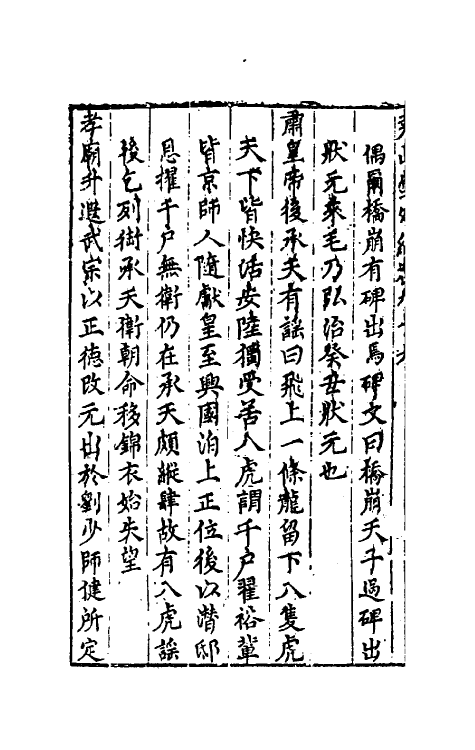 偶爾橋崩有碑出焉碑文曰橋崩天子過碑出
狀元來毛乃弘治癸丑狀元也
肅皇帝後承天有謠曰飛上一條龍留下八隻虎
天下皆快活安陸獨受苦八虎謂千戶翟裕輩
皆京師人隨獻皇至興國洎上正位後以潛邸
恩擢千戶無衛仍在承天頗縱肆故有八虎謠
後乞列銜承天衛朝命移錦衣始失望
孝廟升遐武宗以正德改元出於劉少師健所定